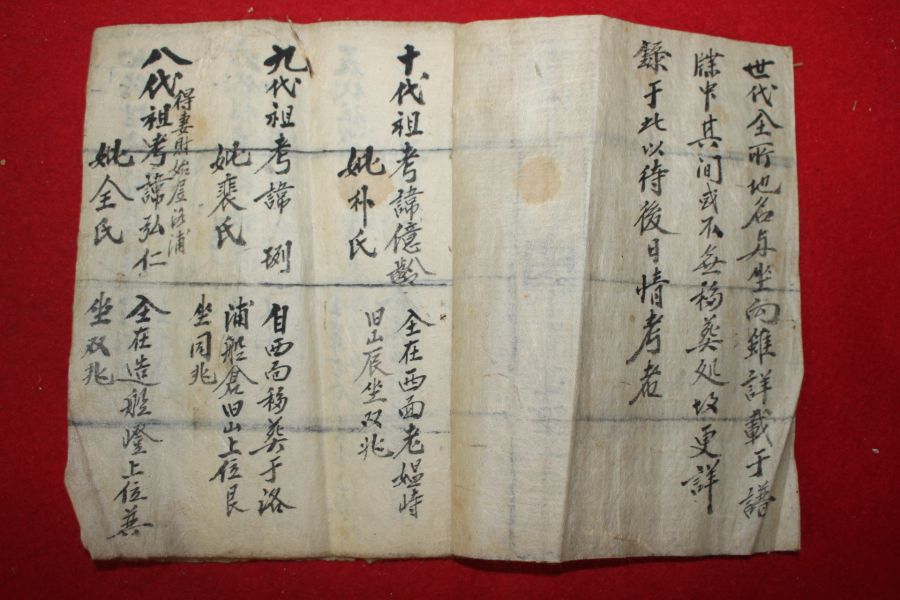 世代仝所地名与坐向雖詳載于譜
牒中其间或不無移葬処故更詳
錄于此以待後日情考者
十代祖考諱億齡 仝在西面老媪峙
妣朴氏 旧山辰坐双兆
九代祖考諱 珋 自西面移葬于洛
妣裴氏 浦船倉旧山上位艮
坐同兆
得妻財始居洛浦
八代祖考諱弘仁 仝在造船嶝上位巽
妣全氏 坐双兆